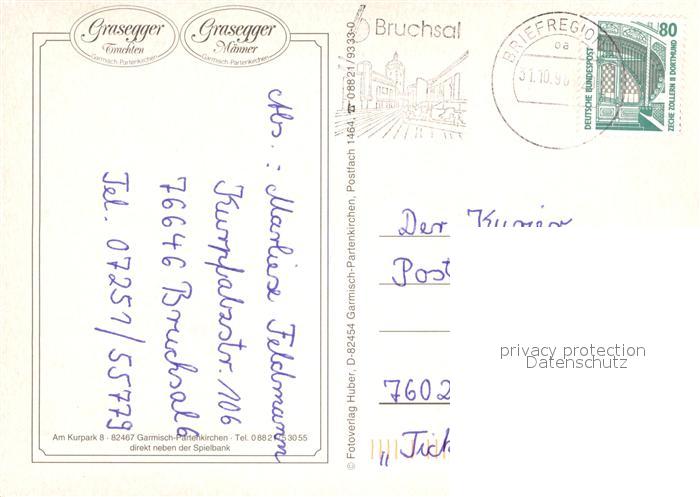 Grasegger
Trachten
Garmisch-Partenkirchen
Grasegger
Männer
Garmisch-Partenkirchen
Abs.: Marliese Feldmann
Kurpfalzstr. 106
76646 Bruchsal 6
Tel. 07251/55779
Am Kurpark 8 · 82467 Garmisch-Partenkirchen · Tel. 08821/53055
direkt neben der Spielbank
© Fotoverlag Huber, D-82454 Garmisch-Partenkirchen, Postfach 1464, ☎ 08821/9333-0
Bruchsal
BRIEFREGION
oa
31.10.96
80
DEUTSCHE BUNDESPOST
ZECHE ZOLLERN II DORTMUND
Der Kurier
Post
7602
„Tick
privacy protection
Datenschutz